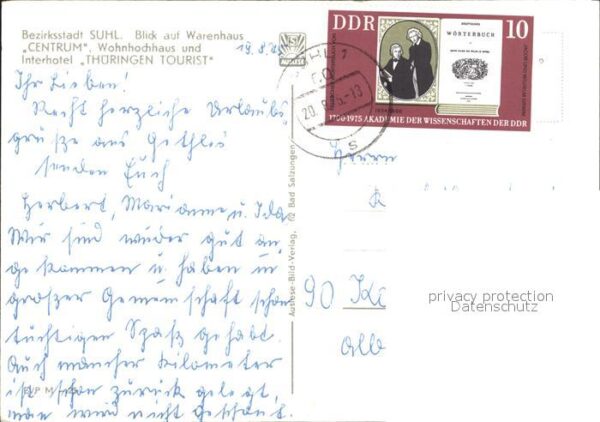 Bezirksstadt SUHL. Blick auf Warenhaus
„CENTRUM“, Wohnhochhaus und
Interhotel „THÜRINGEN TOURIST“
AUSLESE
DDR
10
DEUTSCHES
WÖRTERBUCH
1700-1975 AKADEMIE DER WISSENSCHAFTEN DER DDR
Ihr Lieben!
Recht herzliche Urlaubs
grüße aus
senden Euch
Herbert, Marianne u. Ida
Wir sind wieder gut an
gekommen u. haben in
großer Gemeinschaft schon
tüchtigen Spaß gehabt.
Auch mancher Kilometer
ist schon zurück gelegt,
man wird nicht geschont.
Auslese-Bild-Verlag, 62 Bad Salzungen
Herrn
90
privacy protection
Datenschutz